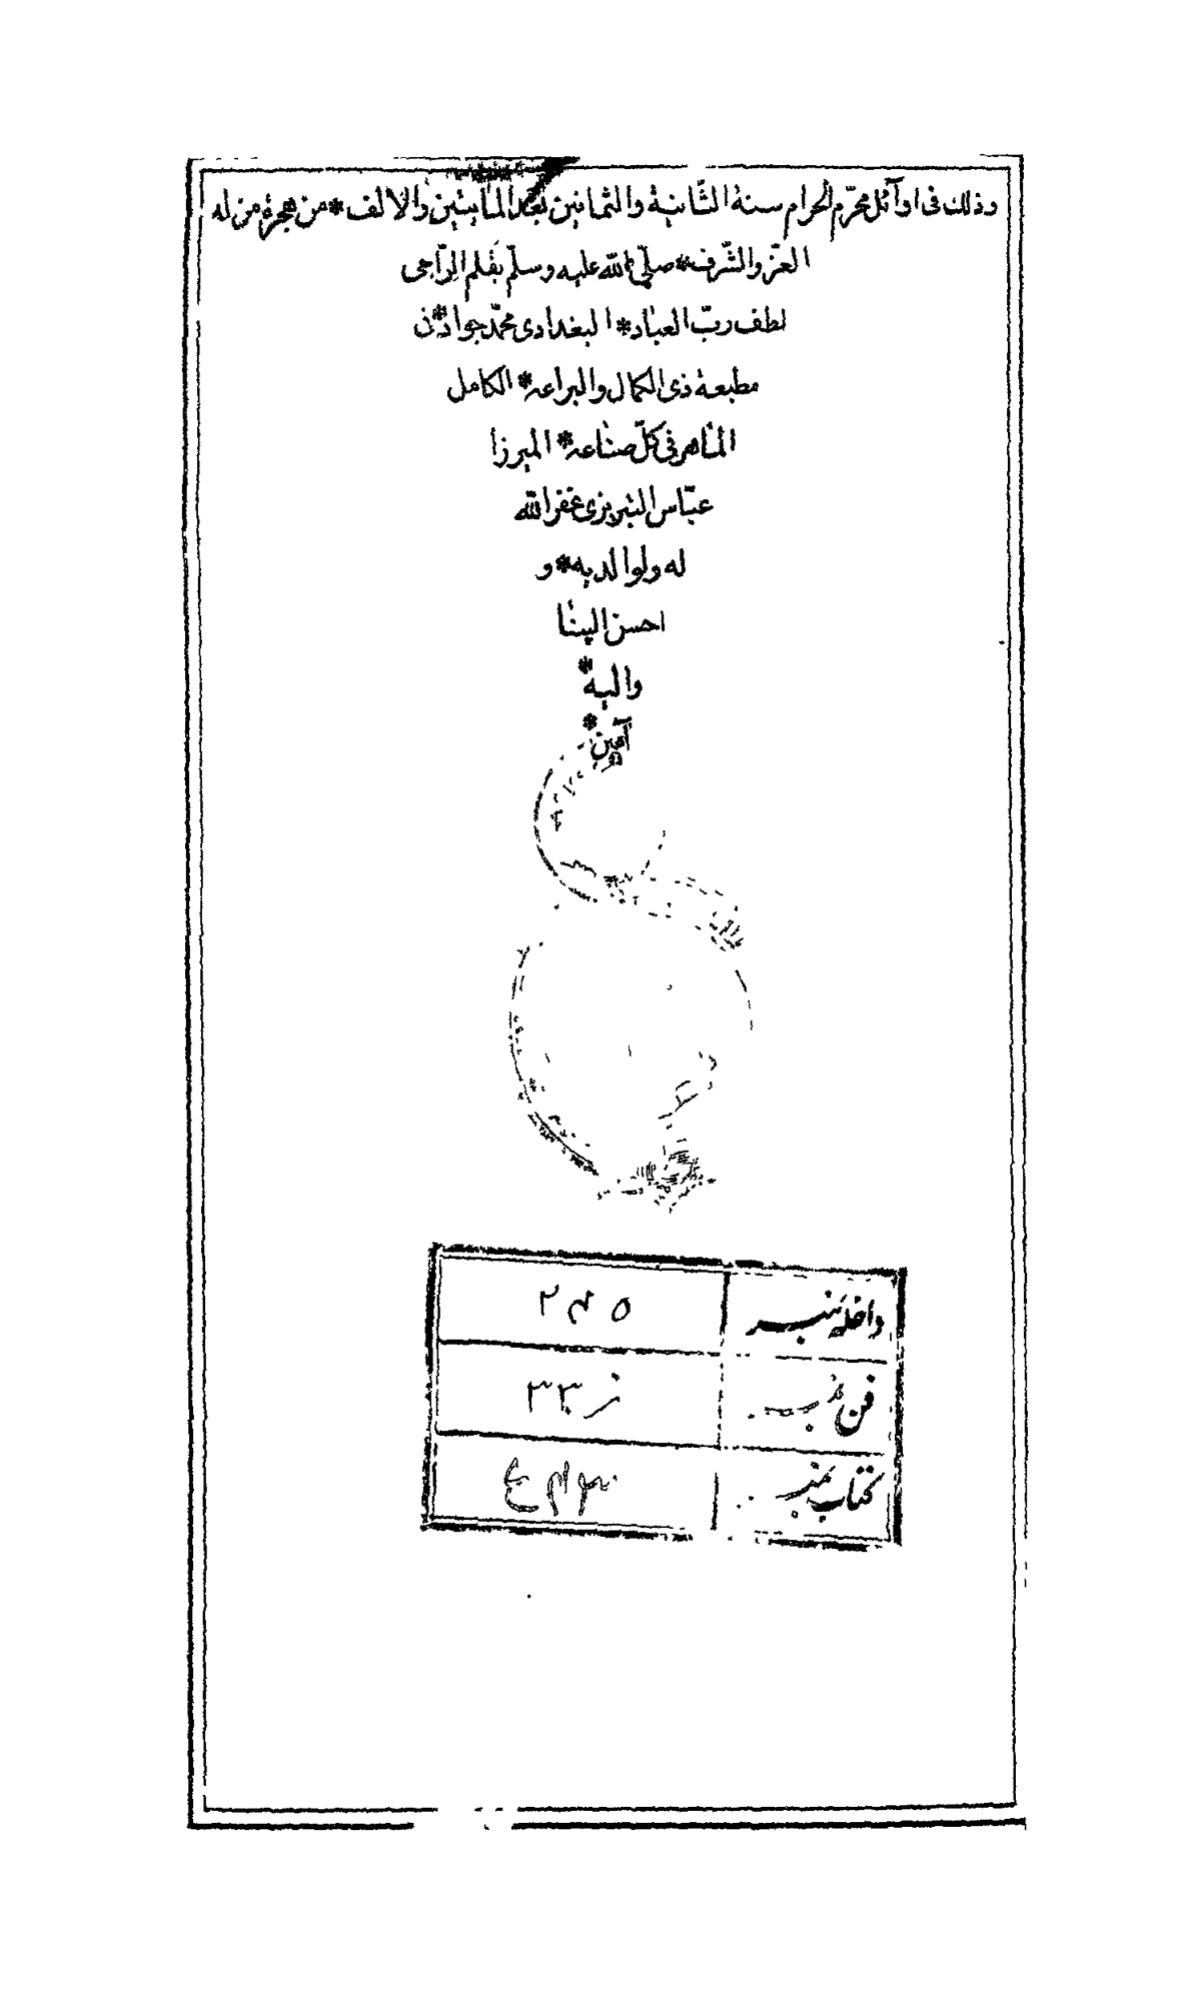 وذلك فى اوآئل محرّم الحرام سنة الثّانية والثمانين بعد المأيتين والالف * من هجرة من له
العزّ والشّرف * صلّى الله عليه وسلّم بقلم الرّاجى
لطف ربّ العباد * البغدادى محمّد جواد * فى
مطبعة ذى الكمال والبراعه * الكامل
الماهر فى كلّ صناعه * الميرزا
عبّاس التبريزى غفر الله
له ولوالديه * و
احسن الينا
واليه *
آمين *
داخله نمبر ٢٤٥
فن نمبر
كتاب نمبر